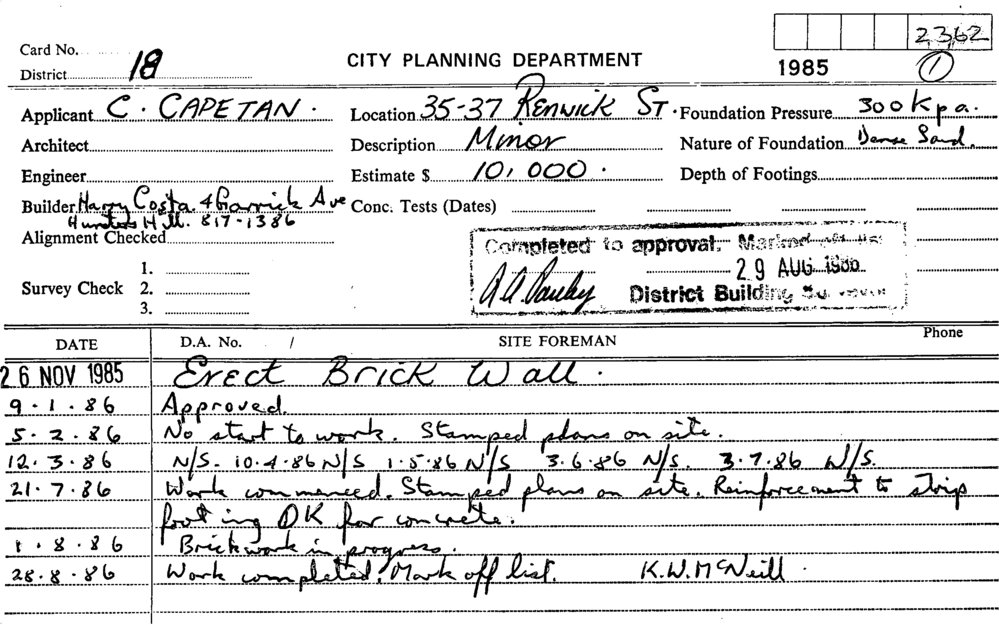 2362
Card No.
District 18
CITY PLANNING DEPARTMENT
1985 1
Applicant C. CAPETAN. Location 35-37 Renwick ST. Foundation Pressure 300 Kpa.
Architect Description Minor Nature of Foundation Dense Sand.
Engineer Estimate $ 10,000. Depth of Footings
Builder Harry Costa 4 Garrick Ave Conc. Tests (Dates)
Hunters Hill. 817-1386
Alignment Checked
Completed to approval, Marked off list
29 AUG 1986
District Building Surveyor
Survey Check 1.
2.
3.
DATE D.A. No. / SITE FOREMAN Phone
26 NOV 1985 Erect Brick Wall.
9.1.86 Approved.
5.2.86 No start to work. Stamped plans on site.
12.3.86 N/S. 10.4.86 N/S 1.5.86 N/S 3.6.86 N/S. 3.7.86 N/S.
21.7.86 Work commenced. Stamped plans on site. Reinforcement to strip
footing OK for concrete.
1.8.86 Brickwork in progress.
28.8.86 Work completed. Mark off list. K.W.McNeill.